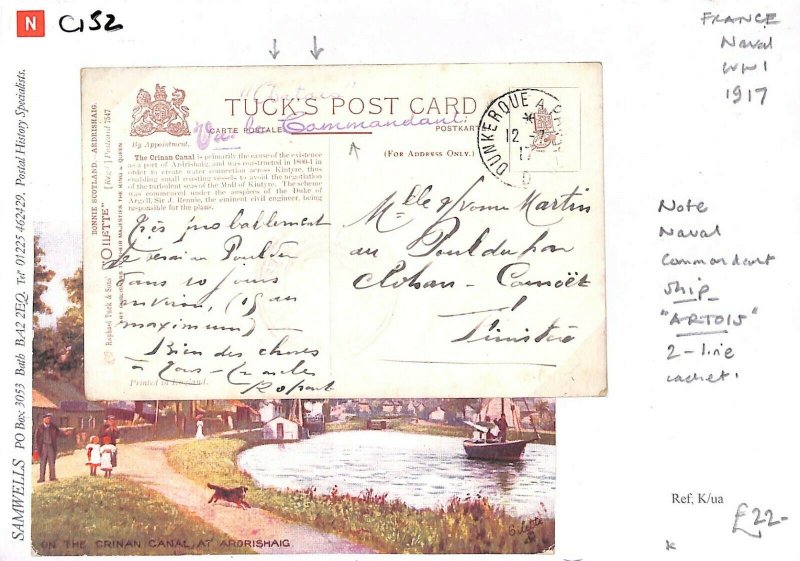 N C152
FRANCE
Naval
WW1
1917
SAMWELLS PO Box 3053 Bath BA2 2EQ. Tel 01225 462429. Postal History Specialists.
BONNIE SCOTLAND. ARDRISHAIG.
"OILETTE" [Regd.] Postcard 7547
Raphael Tuck & Sons'
ART PUBLISHERS TO THEIR MAJESTIES THE KING & QUEEN
By Appointment.
TUCK'S POST CARD
CARTE POSTALE. POSTKARTE
Vu: le Commandant
(FOR ADDRESS ONLY.)
DUNKERQUE A
12 - 7
17
The Crinan Canal is primarily the cause of the existence
as a port of Ardrishaig, and was constructed in 1809-1 in
order to create water connection across Kintyre, thus
enabling small coasting vessels to avoid the negotiation
of the turbulent seas of the Mull of Kintyre. The scheme
was commenced under the auspices of the Duke of
Argyll, Sir J. Rennie, the eminent civil engineer, being
responsible for the plans.
Très probablement
Je serai Pouldu
dans 10 jours
environ, (15 au
maximum) —
Bien des choses
à
Printed in England.
Mlle Yvonne Martin
au Pouldu
Clohars - Carnoët
Finistère
Note
Naval
Commandant
Ship
"ARTOIS"
2-line
cachet.
ON THE CRINAN CANAL, AT ARDRISHAIG.
Oilette
Ref, K/ua
£22-
K